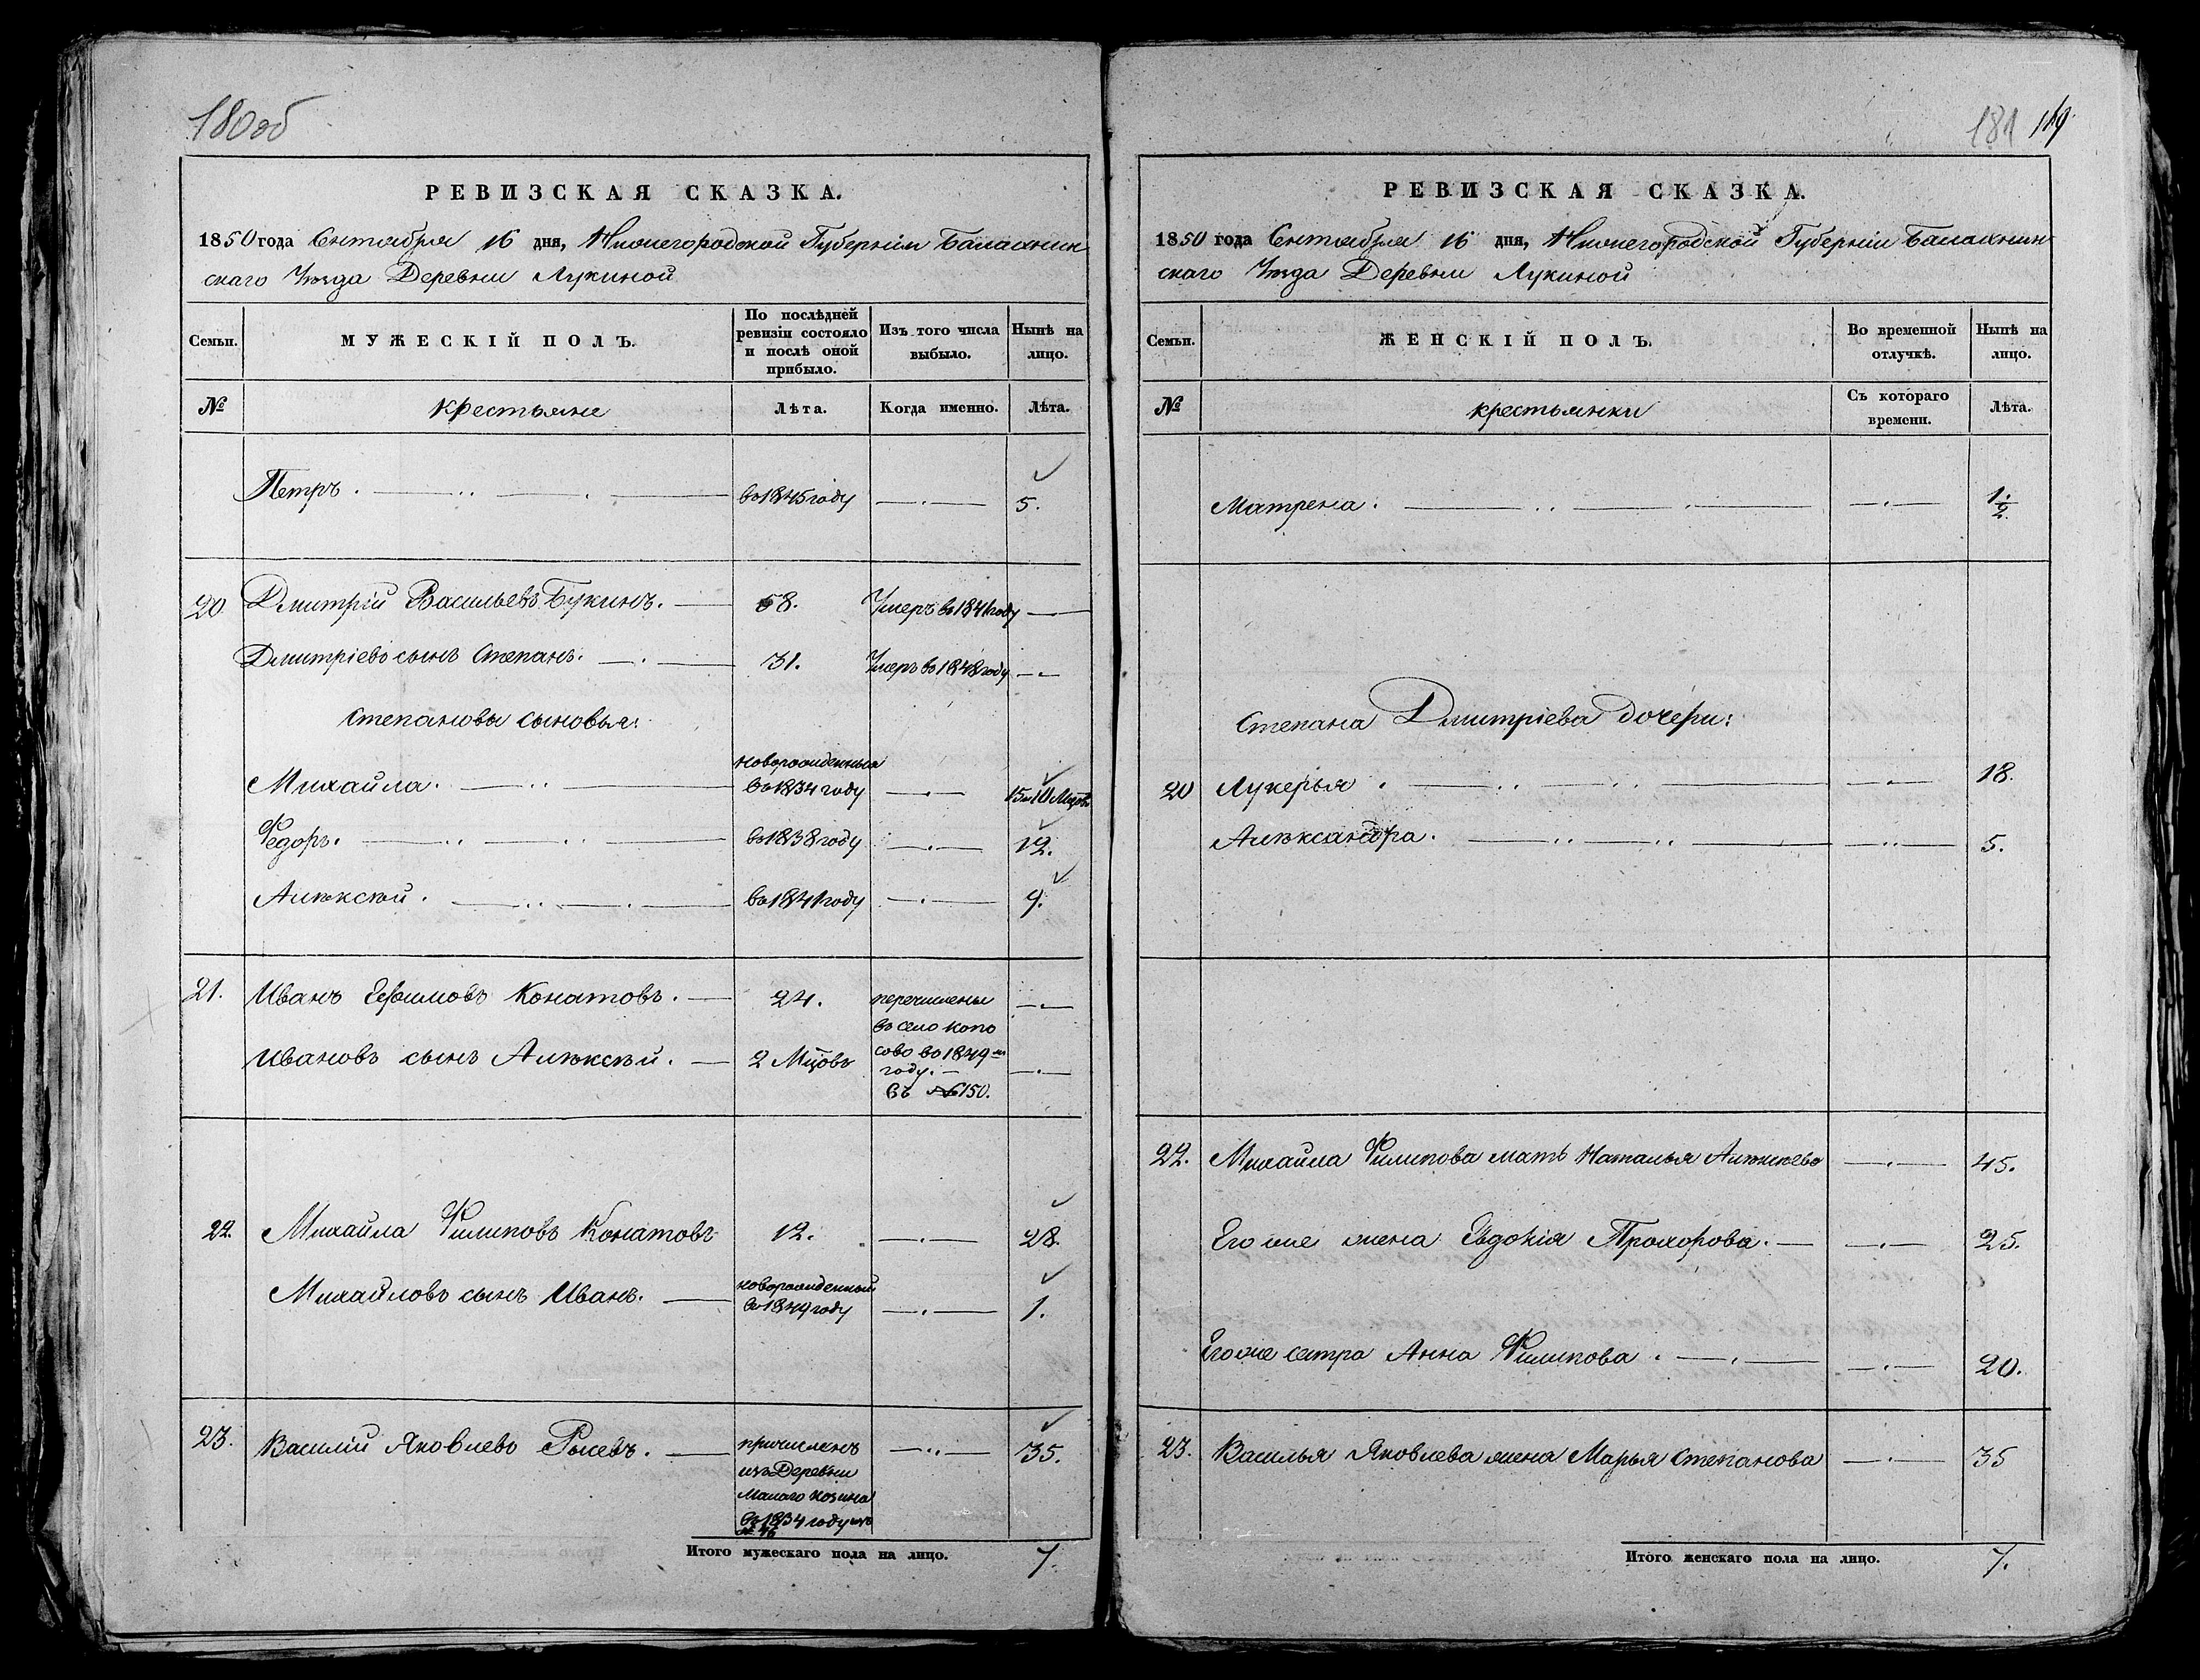 180об
РЕВИЗСКАЯ СКАЗКА.
1850 года Сентября 16 дня, Нижегородской Губерніи Балахнин
скаго Уѣзда Деревни Лукиной
Семьи. МУЖЕСКІЙ ПОЛЪ. По послѣдней ревизіи состояло и послѣ оной прибыло. Изъ того числа выбыло. Нынѣ на лицо.
№ крестьяне Лѣта. Когда именно. Лѣта.
Петръ. во 1845 году 5.
20 Дмитрій Васильевъ Букинъ. 68. Умеръ во 1841 году
Дмитріевъ сынъ Степанъ. 31. Умеръ во 1848 году
Степановы сыновья:
Михайла. новорожденныя во 1834 году 15 и 10 Мцовъ
Федоръ. во 1838 году 12.
Алѣксѣй. во 1841 году 9.
21. Иванъ Ефимовъ Конатовъ. 24. перечислены
въ село Копо
Ивановъ сынъ Алѣксѣй. 2 Мцовъ сово во 1849 м
году.
въ №150.
22. Михайла Филиповъ Конатовъ 12. 28.
Михайловъ сынъ Иванъ. новорожденный во 1849 году 1.
23. Василій Яковлевъ Рыжевъ. причисленъ 35.
изъ Деревни
Малаго Козина
во 1834 году изъ
№ 46
Итого мужескаго пола на лицо. 7.
181 119
РЕВИЗСКАЯ СКАЗКА.
1850 года Сентября 16 дня, Нижегородской Губерніи Балахнин
скаго Уѣзда Деревни Лукиной
Семьи. ЖЕНСКІЙ ПОЛЪ. Во временной отлучкѣ. Нынѣ на лицо.
№ крестьянки Съ котораго времени. Лѣта.
Матрена. 1 1/2.
Степана Дмитріева дочери:
20 Лукерья. 18.
Алѣксандра. 5.
22. Михайла Филипова мать Наталья Алѣксѣева 45.
Его же жена Евдокія Прохорова. 25.
Его же сестра Анна Филипова. 20.
23. Василья Яковлева жена Марья Степанова 35
Итого женскаго пола на лицо. 7.